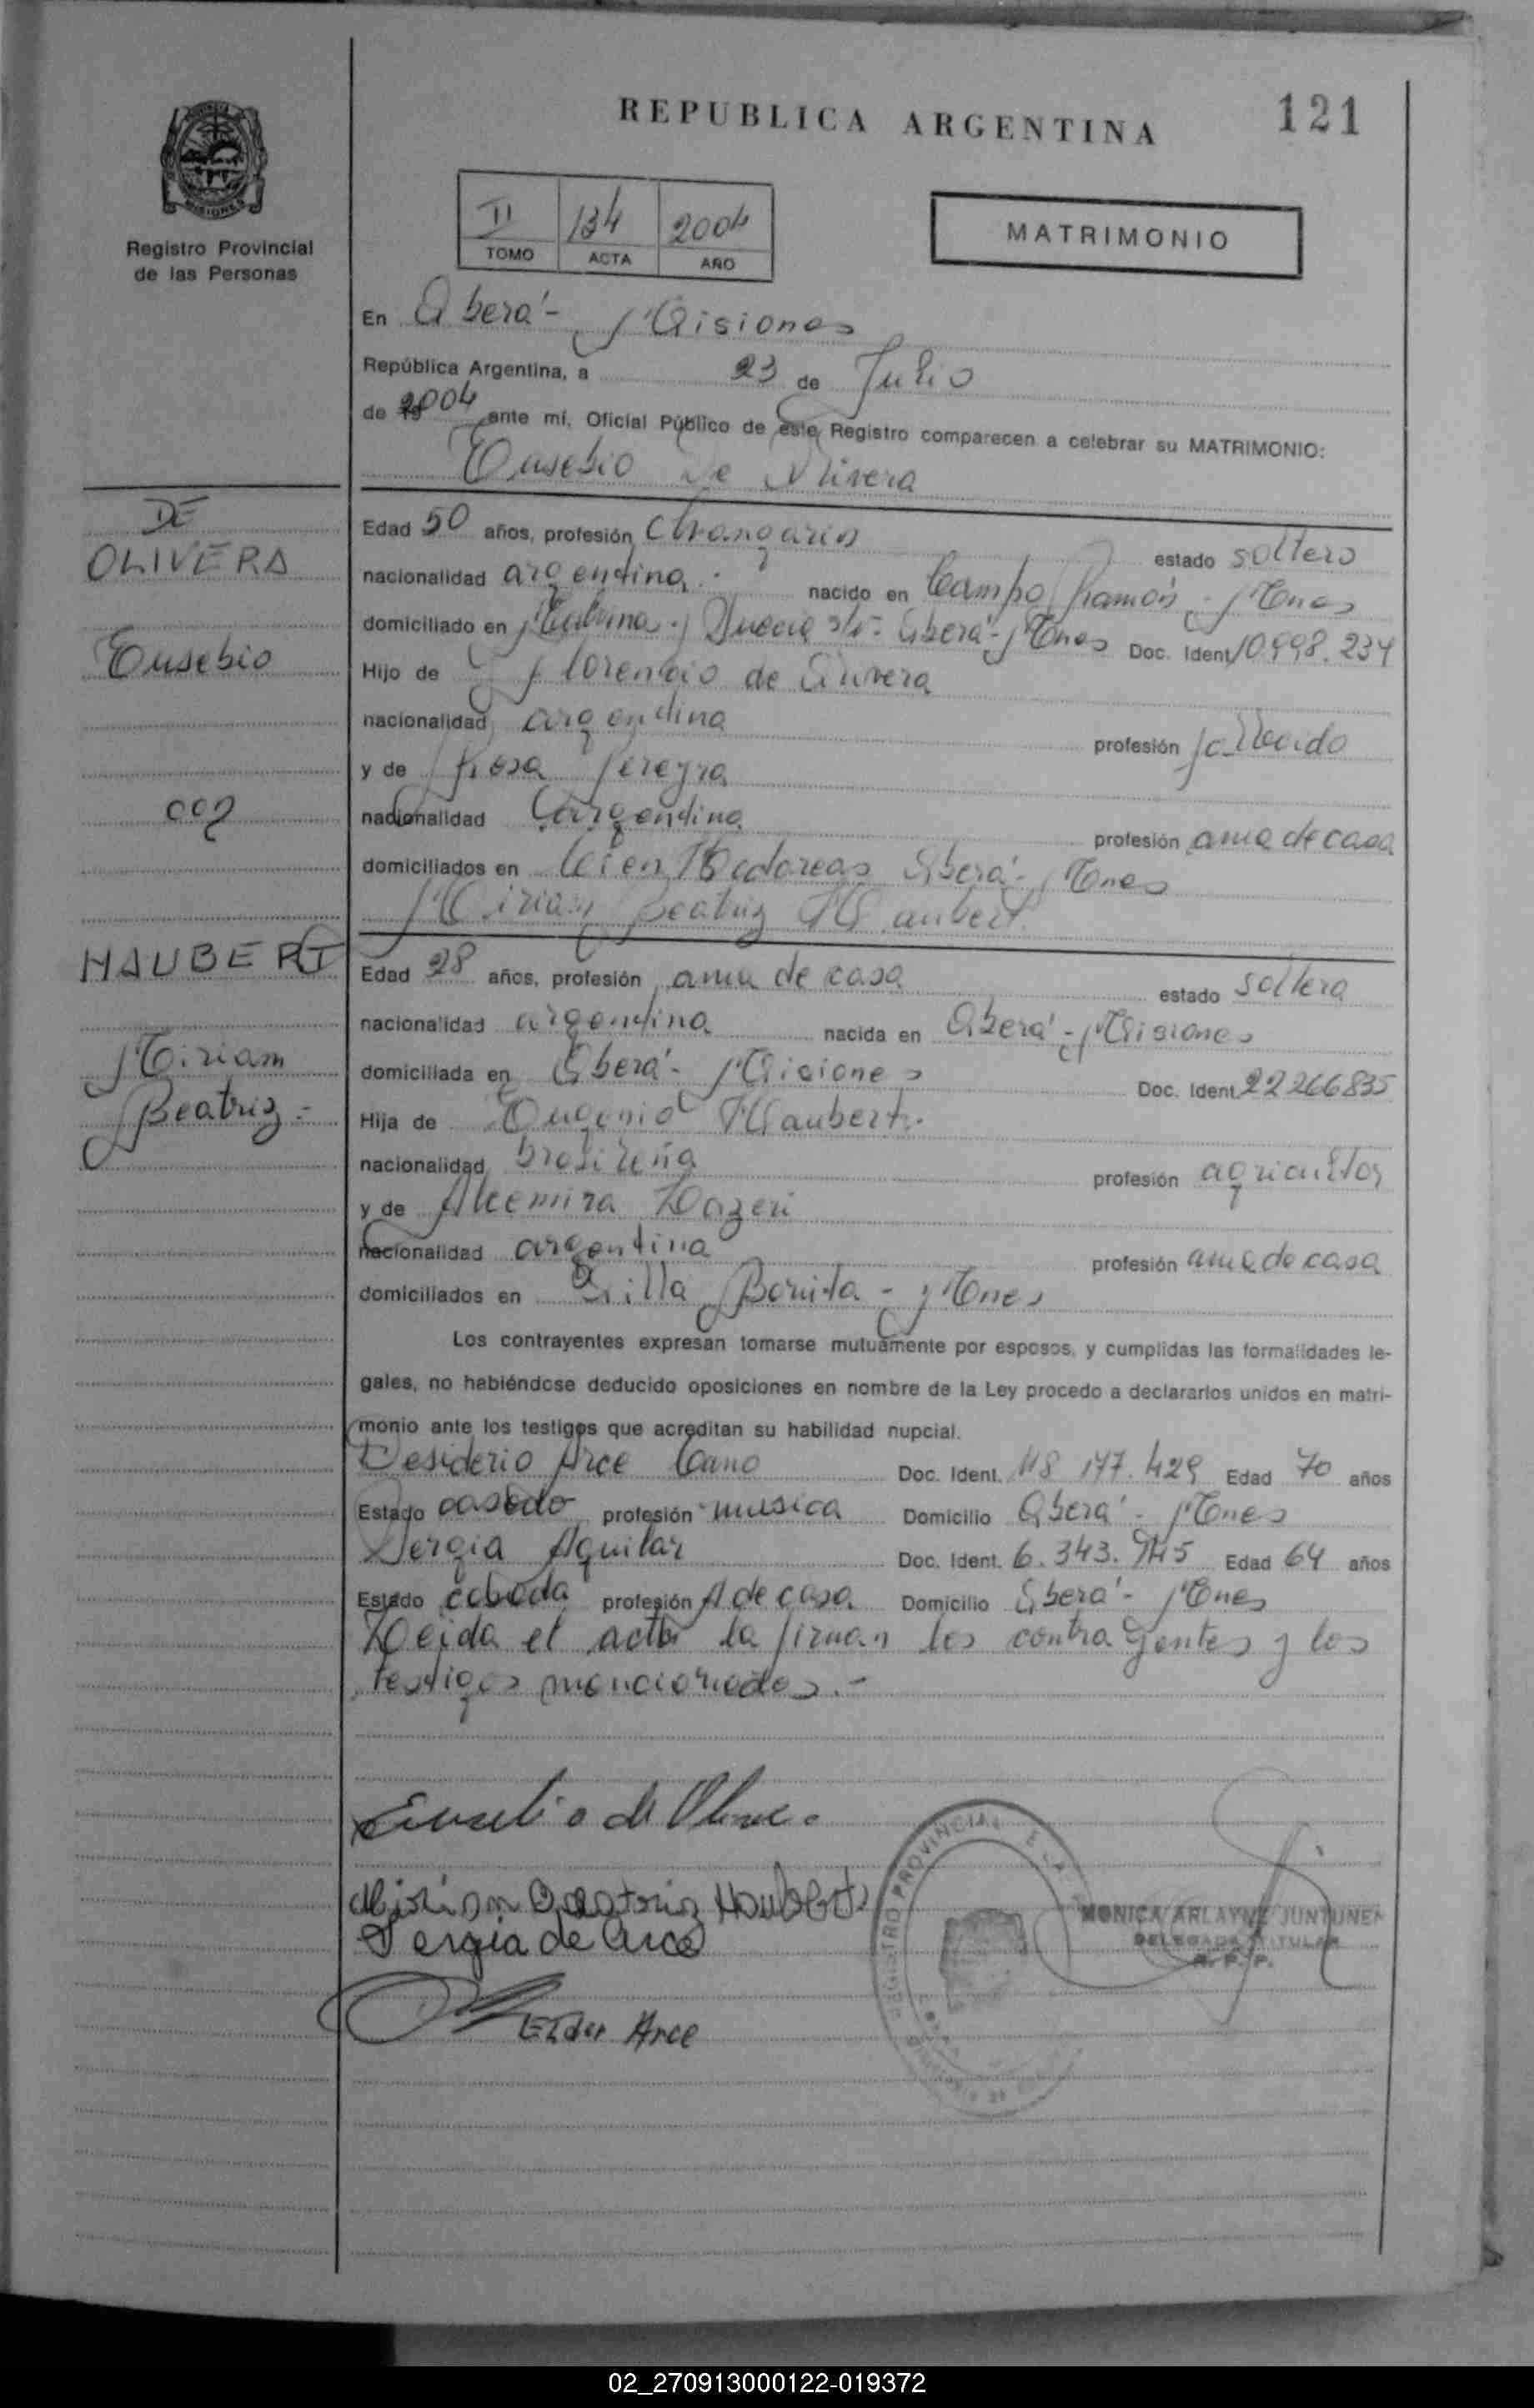 REPUBLICA ARGENTINA
121
Registro Provincial
de las Personas
II 134 2004
TOMO ACTA AÑO
MATRIMONIO
En Oberá - Misiones
República Argentina, a 23 de Julio
de 2004 ante mí, Oficial Público de este Registro comparecen a celebrar su MATRIMONIO:
Eusebio de Olivera
DE
OLIVERA
Eusebio
con
Edad 50 años, profesión Changarin estado soltero
nacionalidad argentina nacido en Campo Ramón - Mnes
domiciliado en y Suecia s/n - Oberá - Mnes Doc. Ident 10.998.234
Hijo de Florencio de Olivera
nacionalidad argentina profesión fallecido
y de Rosa Pereyra
nacionalidad argentina profesión ama de casa
domiciliados en Cien Hectareas Oberá - Mnes
Miriam Beatriz Haubert
HAUBERT
Miriam
Beatriz -
Edad 28 años, profesión ama de casa estado soltera
nacionalidad argentina nacida en Oberá - Misiones
domiciliada en Oberá - Misiones Doc. Ident. 22266835
Hija de Eugenio Haubert.
nacionalidad brasileña profesión agricultor
y de Alcemira
nacionalidad argentina profesión ama de casa
domiciliados en Villa Bonita - Mnes
Los contrayentes expresan tomarse mutuamente por esposos, y cumplidas las formalidades le-
gales, no habiéndose deducido oposiciones en nombre de la Ley procedo a declararlos unidos en matri-
monio ante los testigos que acreditan su habilidad nupcial.
Desiderio Arce Cano Doc. Ident. 18 177.429 Edad 70 años
Estado casado profesión musica Domicilio Oberá - Mnes
Sergia Aguilar Doc. Ident. 6.343.745 Edad 64 años
Estado casada profesión A de casa Domicilio Oberá - Mnes
Leida el acta la firman los contrayentes y los
testigos mencionados.-
Eusebio de Olivera
Miriam Beatriz Haubert
Sergia de Arce
Elder Arce
REGISTRO PROVINCIAL
MONICA ARLAYNE JUNTUNEN
DELEGADA TITULAR
R. P. P.
02_270913000122-019372